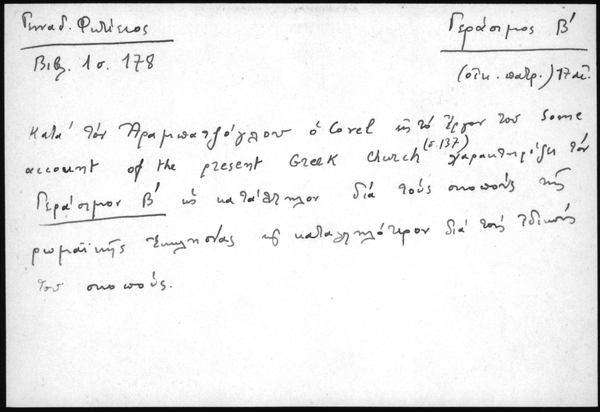 Γενναδ. Φωτίειος
Γεράσιμος Β'
Βιβλ. 1 σ. 178
(οἰκ. πατρ.) 17 αἰ.
κατά τόν Ἀραμπατζόγλου ὁ Covel εἰς τό ἔργον του some
account of the present Greek Church (σ. 137) χαρακτηρίζει τόν
Γεράσιμον Β' ὡς κατάλληλον διά τούς σκοπούς τῆς
ρωμαϊκῆς ἐκκλησίας καί καταλληλότερον διά τούς ἰδικούς
του σκοπούς.